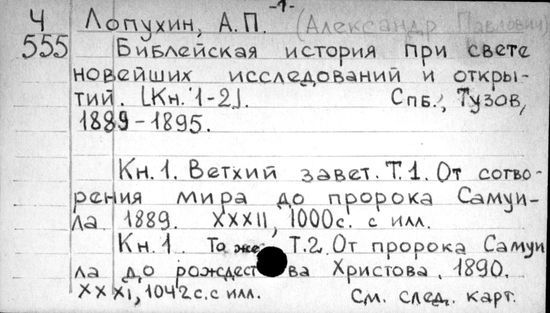 -1-
Ч Лопухин, А.П. (Александр Павлович)
555 Библейская история при свете
новейших исследований и откры-
тий. [Кн. 1-2]. Спб., Тузов,
1889-1895.
Кн. 1. Ветхий завет. Т.1. От сотво-
рения мира до пророка Самуи-
ла. 1889. XXXII, 1000с. с илл.
Кн. 1. То же. Т.2. От пророка Самуи
ла до рождества Христова. 1890.
XXXI, 1042с. с илл. См. след. карт.